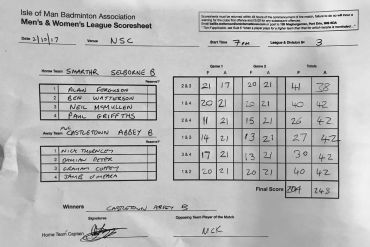 Isle of Man Badminton Association
Men's & Women's League Scoresheet
Date 2/10/17 Venue NSC Start Time 7PM League & Division No 3
Home Team SMARTHR SELBORNE B
Reserve?
1 ALAN FERGUSON
2 BEN WATTERSON
3 NEIL MCMULLEN
4 PAUL GRIFFITHS
Away Team PVC CASTLETOWN ABBEY B
Reserve?
1 NICK THORNLEY
2
3 GRAHAM
4 JAMIE O'MEARA
Game 1 Game 2 Totals
F A F A F A
2 & 3 21 17 20 21 41 38
1 & 4 20 21 20 21 40 42
3 & 4 11 21 15 21 26 42
1 & 3 14 21 13 21 27 42
2 & 4 17 21 13 21 30 42
1 & 2 20 21 20 21 40 42
Final Score 204 248
Winners CASTLETOWN ABBEY B
Signatures Opposing Team Player of the Match
Home Team Captain NICK